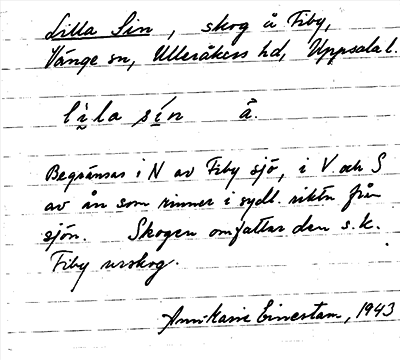 Lilla Sin, skog å Fiby,
Vänge sn, Ulleråkers hd, Uppsala l.
lìla sín å.
Begränsas i N av Fiby sjö, i V. och S
av ån som rinner i sydl. riktn från
sjön. Skogen omfattar den s.k.
Fiby urskog.
Ann-Karin Einestam, 1943